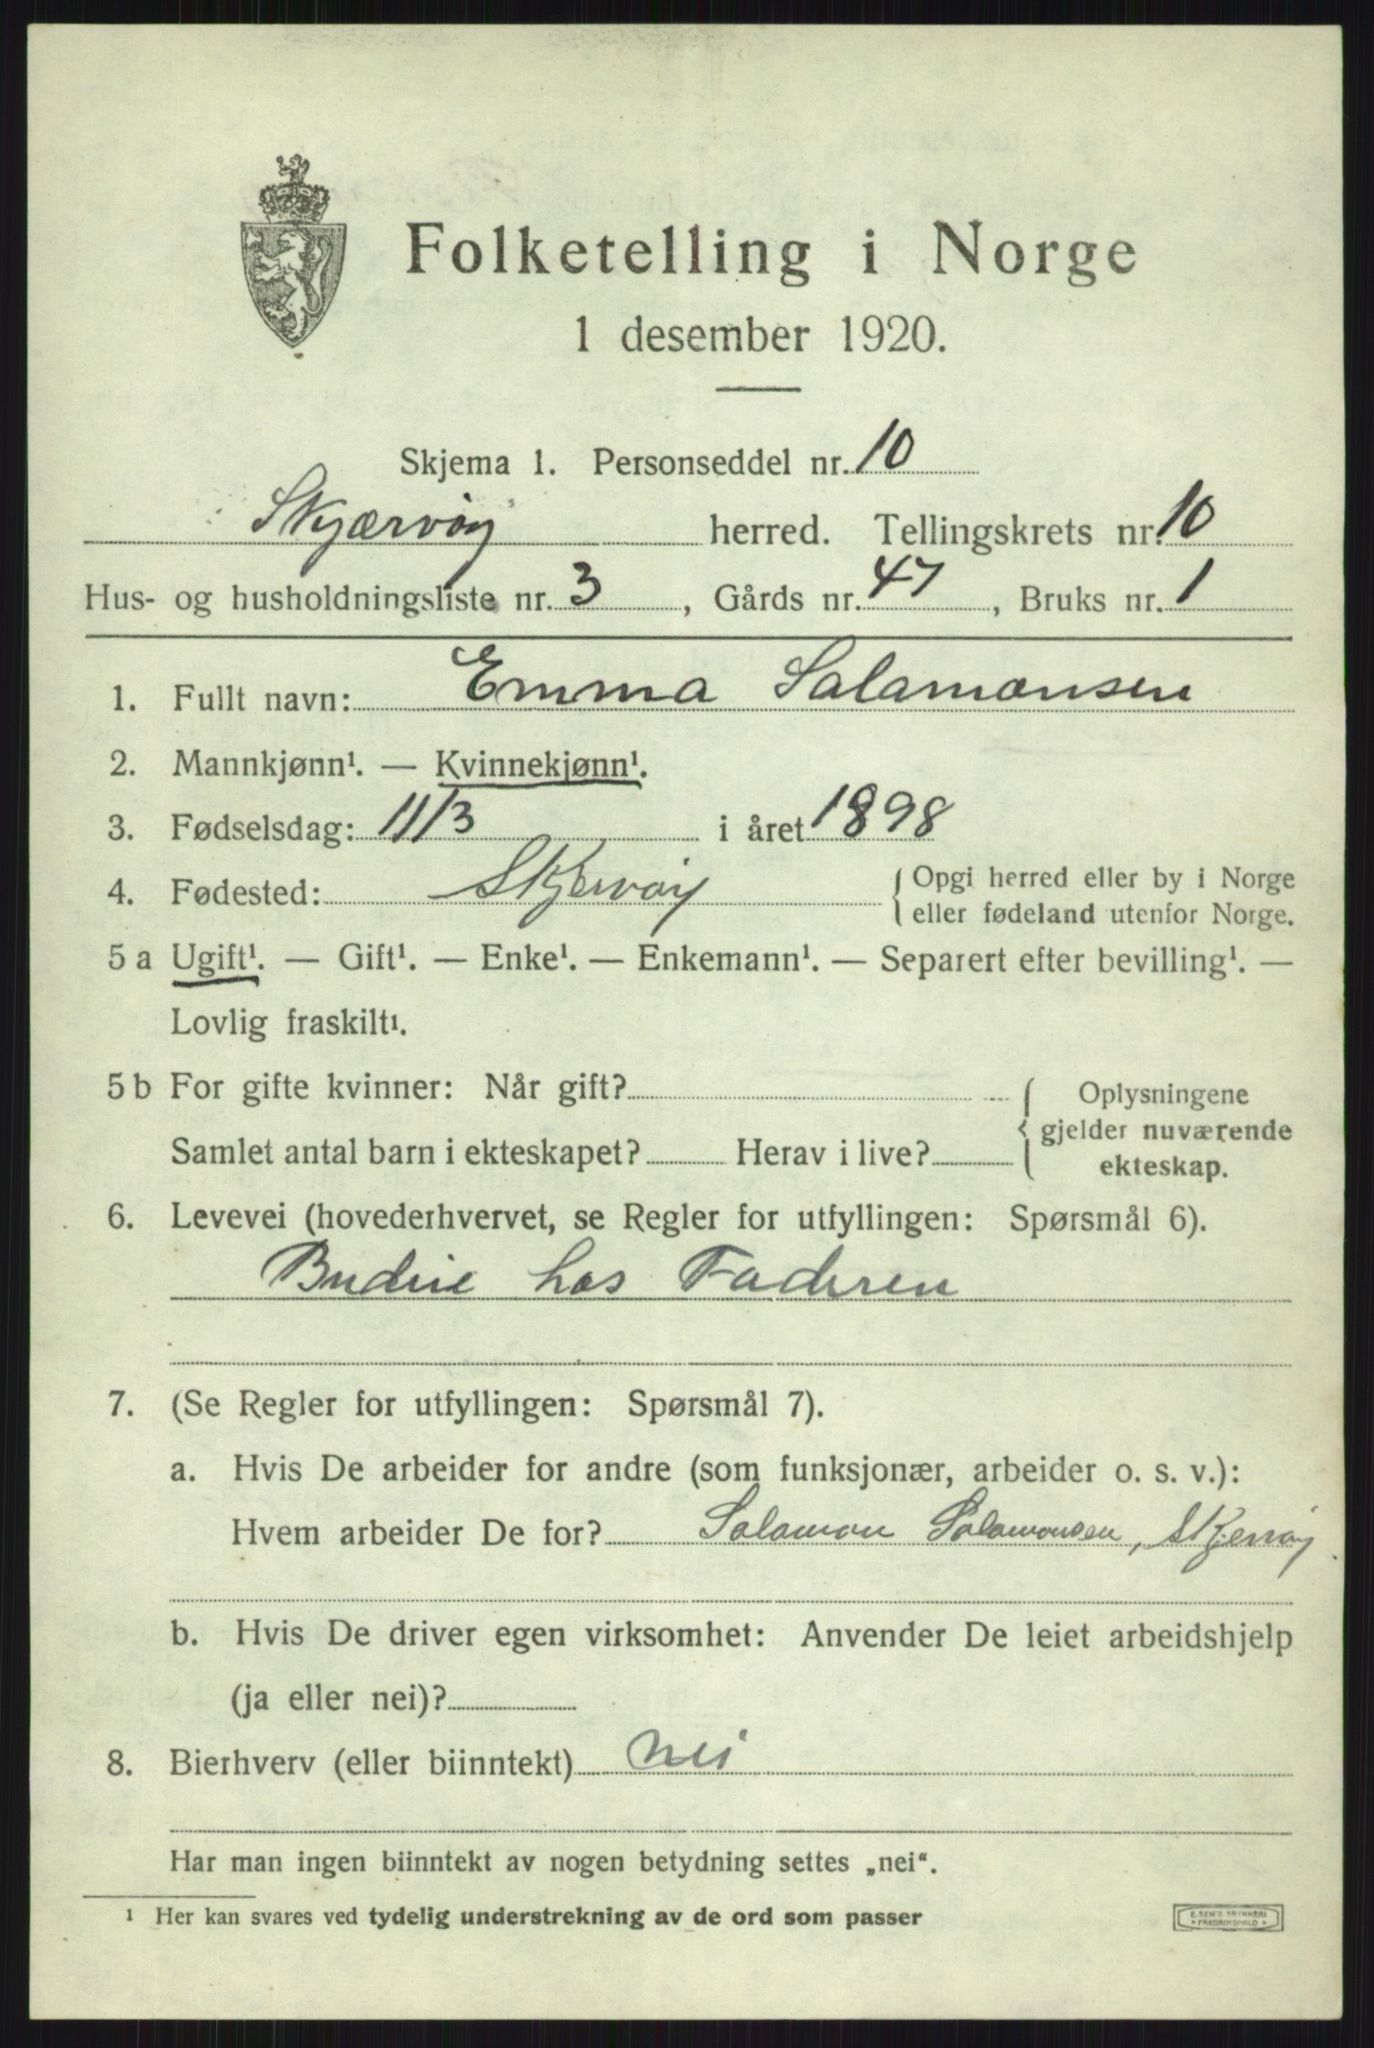 Folketelling i Norge
1 desember 1920.
Skjema 1. Personseddel nr. 10
Skjærvöy herred. Tellingskrets nr. 10
Hus- og husholdningsliste nr. 3, Gårds nr. 47, Bruks nr. 1
1. Fullt navn: Emma Salamonsen
2. Mannkjønn¹. — Kvinnekjønn¹.
3. Fødselsdag: 11/3 i året 1898
4. Fødested: Skjervöy { Opgi herred eller by i Norge
eller fødeland utenfor Norge.
5 a Ugift¹. — Gift¹. — Enke¹. — Enkemann¹. — Separert efter bevilling¹. —
Lovlig fraskilt¹.
5 b For gifte kvinner: Når gift? { Oplysningene
gjelder nuværende
Samlet antal barn i ekteskapet? Herav i live? ekteskap.
6. Levevei (hovederhvervet, se Regler for utfyllingen: Spørsmål 6).
Budeie hos Faderen
7. (Se Regler for utfyllingen: Spørsmål 7).
a. Hvis De arbeider for andre (som funksjonær, arbeider o. s. v.):
Hvem arbeider De for? Salamon Salamonsen, Skjervöy
b. Hvis De driver egen virksomhet: Anvender De leiet arbeidshjelp
(ja eller nei)?
8. Bierhverv (eller biinntekt) nei
Har man ingen biinntekt av nogen betydning settes „nei“.
¹ Her kan svares ved tydelig understrekning av de ord som passer
E. SEM'S TRYKKERI
* FREDRIKSHALD *